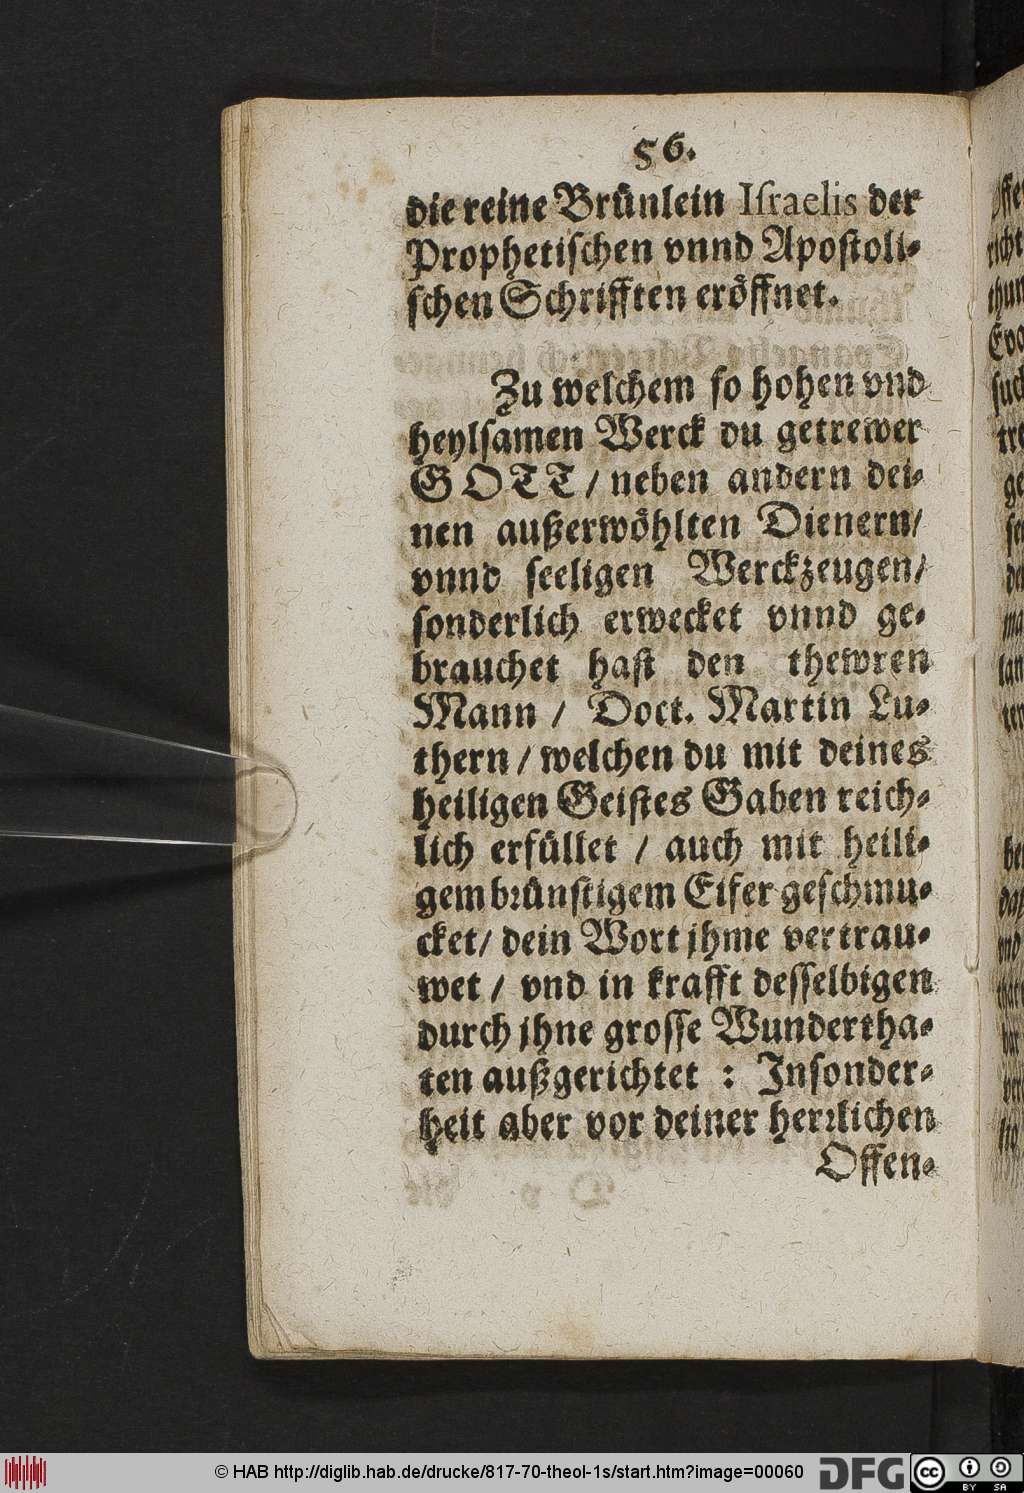 56.
die reine Brünlein Iſraelis der
Prophetiſchen vnnd Apoſtoli-
ſchen Schrifften eröffnet.
Zu welchem ſo hohen vnd
heylſamen Werck du getrewer
GOTT / neben andern dei-
nen außerwöhlten Dienern /
vnnd ſeeligen Werckzeugen /
ſonderlich erwecket vnnd ge-
brauchet haſt den thewren
Mann / Doct. Martin Lu-
thern / welchen du mit deines
heiligen Geiſtes Gaben reich-
lich erfüllet / auch mit heili-
gem brünſtigem Eifer geſchmu-
cket / dein Wort jhme vertrau-
wet / vnd in krafft deſſelbigen
durch jhne groſſe Wundertha-
ten außgerichtet : Inſonder-
heit aber vor deiner herrlichen
Offen-
© HAB http://diglib.hab.de/drucke/817-70-theol-1s/start.htm?image=00060
DFG
cc
BY SA